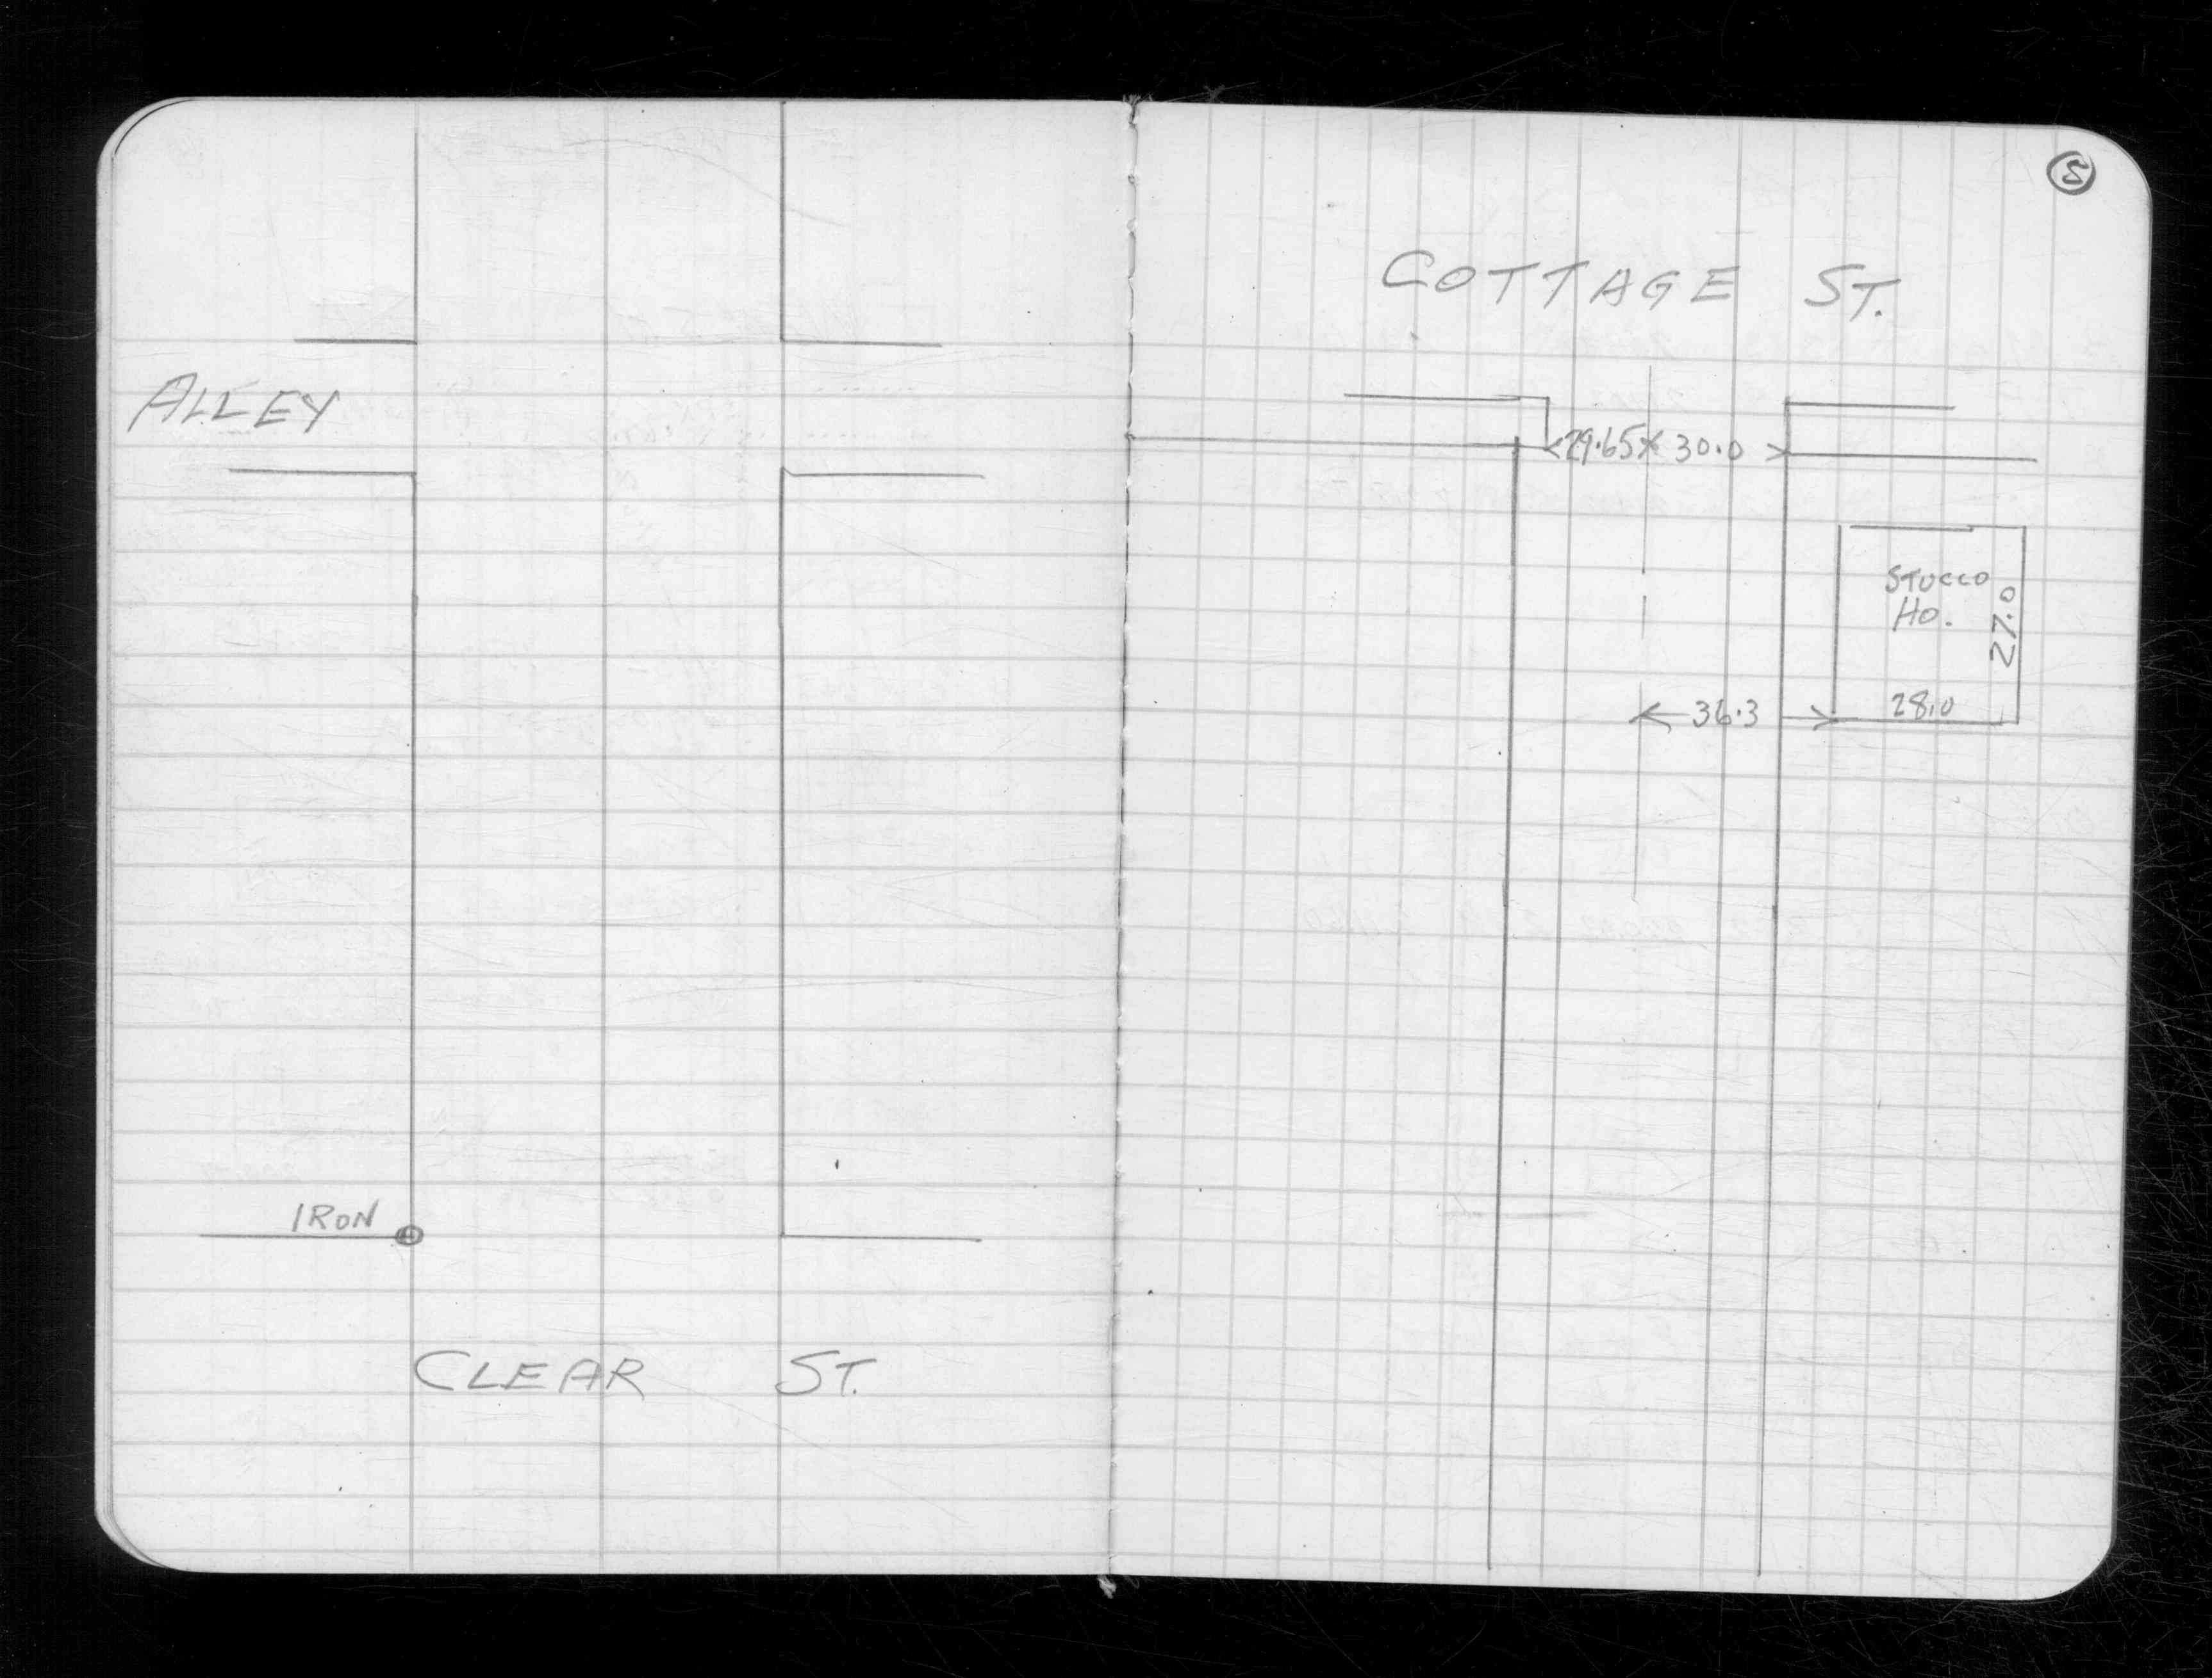 ALLEY
IRON
CLEAR ST.
5
COTTAGE ST.
29.65 30.0
STUCCO
HO.
27.0
36.3
28.0